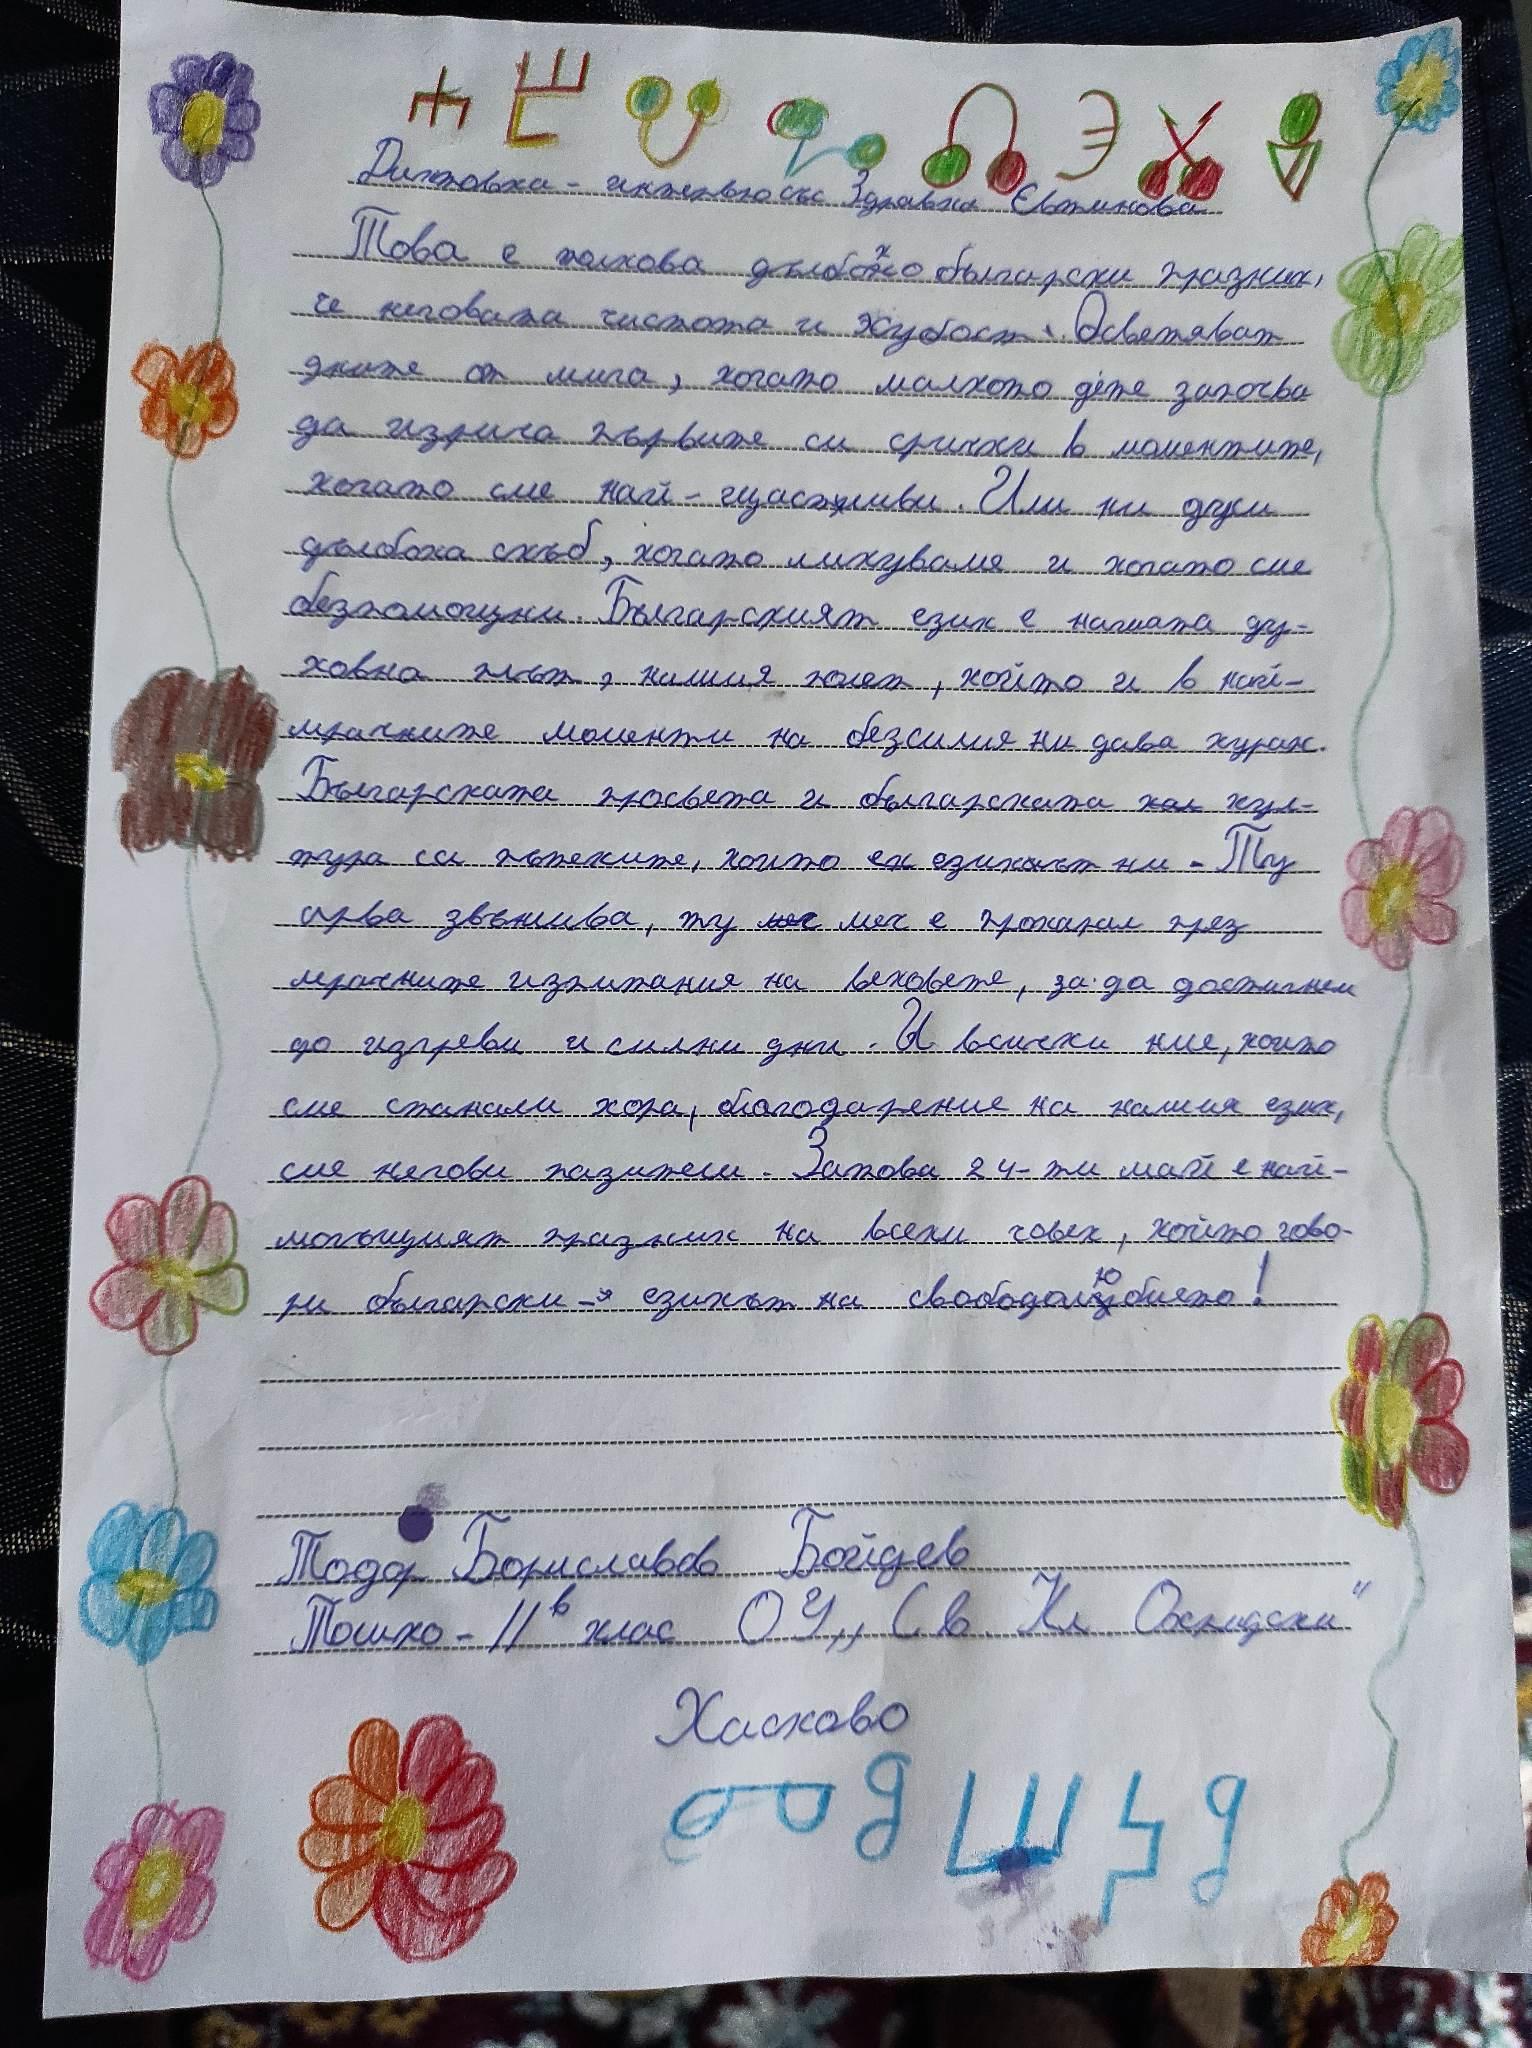 Диктовка - интервю със Здравка Евтимова
Това е толкова дълбоко български празник,
че неговата чистота и хубост. Осветяват
дните от мига, когато малкото дете започва
да изрича първите си срички в моментите,
когато сме най-щастливи. Или ни души
дълбока скъб, когато ликуваме и когато сме
безпомощни. Българският език е нашата ду-
ховна плът, нашия полет, който и в най-
мрачните моменти на безсилия ни дава кураж.
Българската просвета и българската кул-
тура са пътеките, които ек езикът ни - Ту
арва звънлива, ту меч е прокарал през
мрачните изпитания на вековете, за да достигнем
до изгреви и силни дни. И всички ние, които
сме станали хора, благодарение на нашия език,
сме негови пазители. Затова 24-ти май е най-
могъщият празник на всеки човек, който гово-
ри български-я езикът на свободолюбието!
Тодор Бориславов Бойдев
Тошко - II в клас ОУ „Св. Кл. Охридски"
Хасково